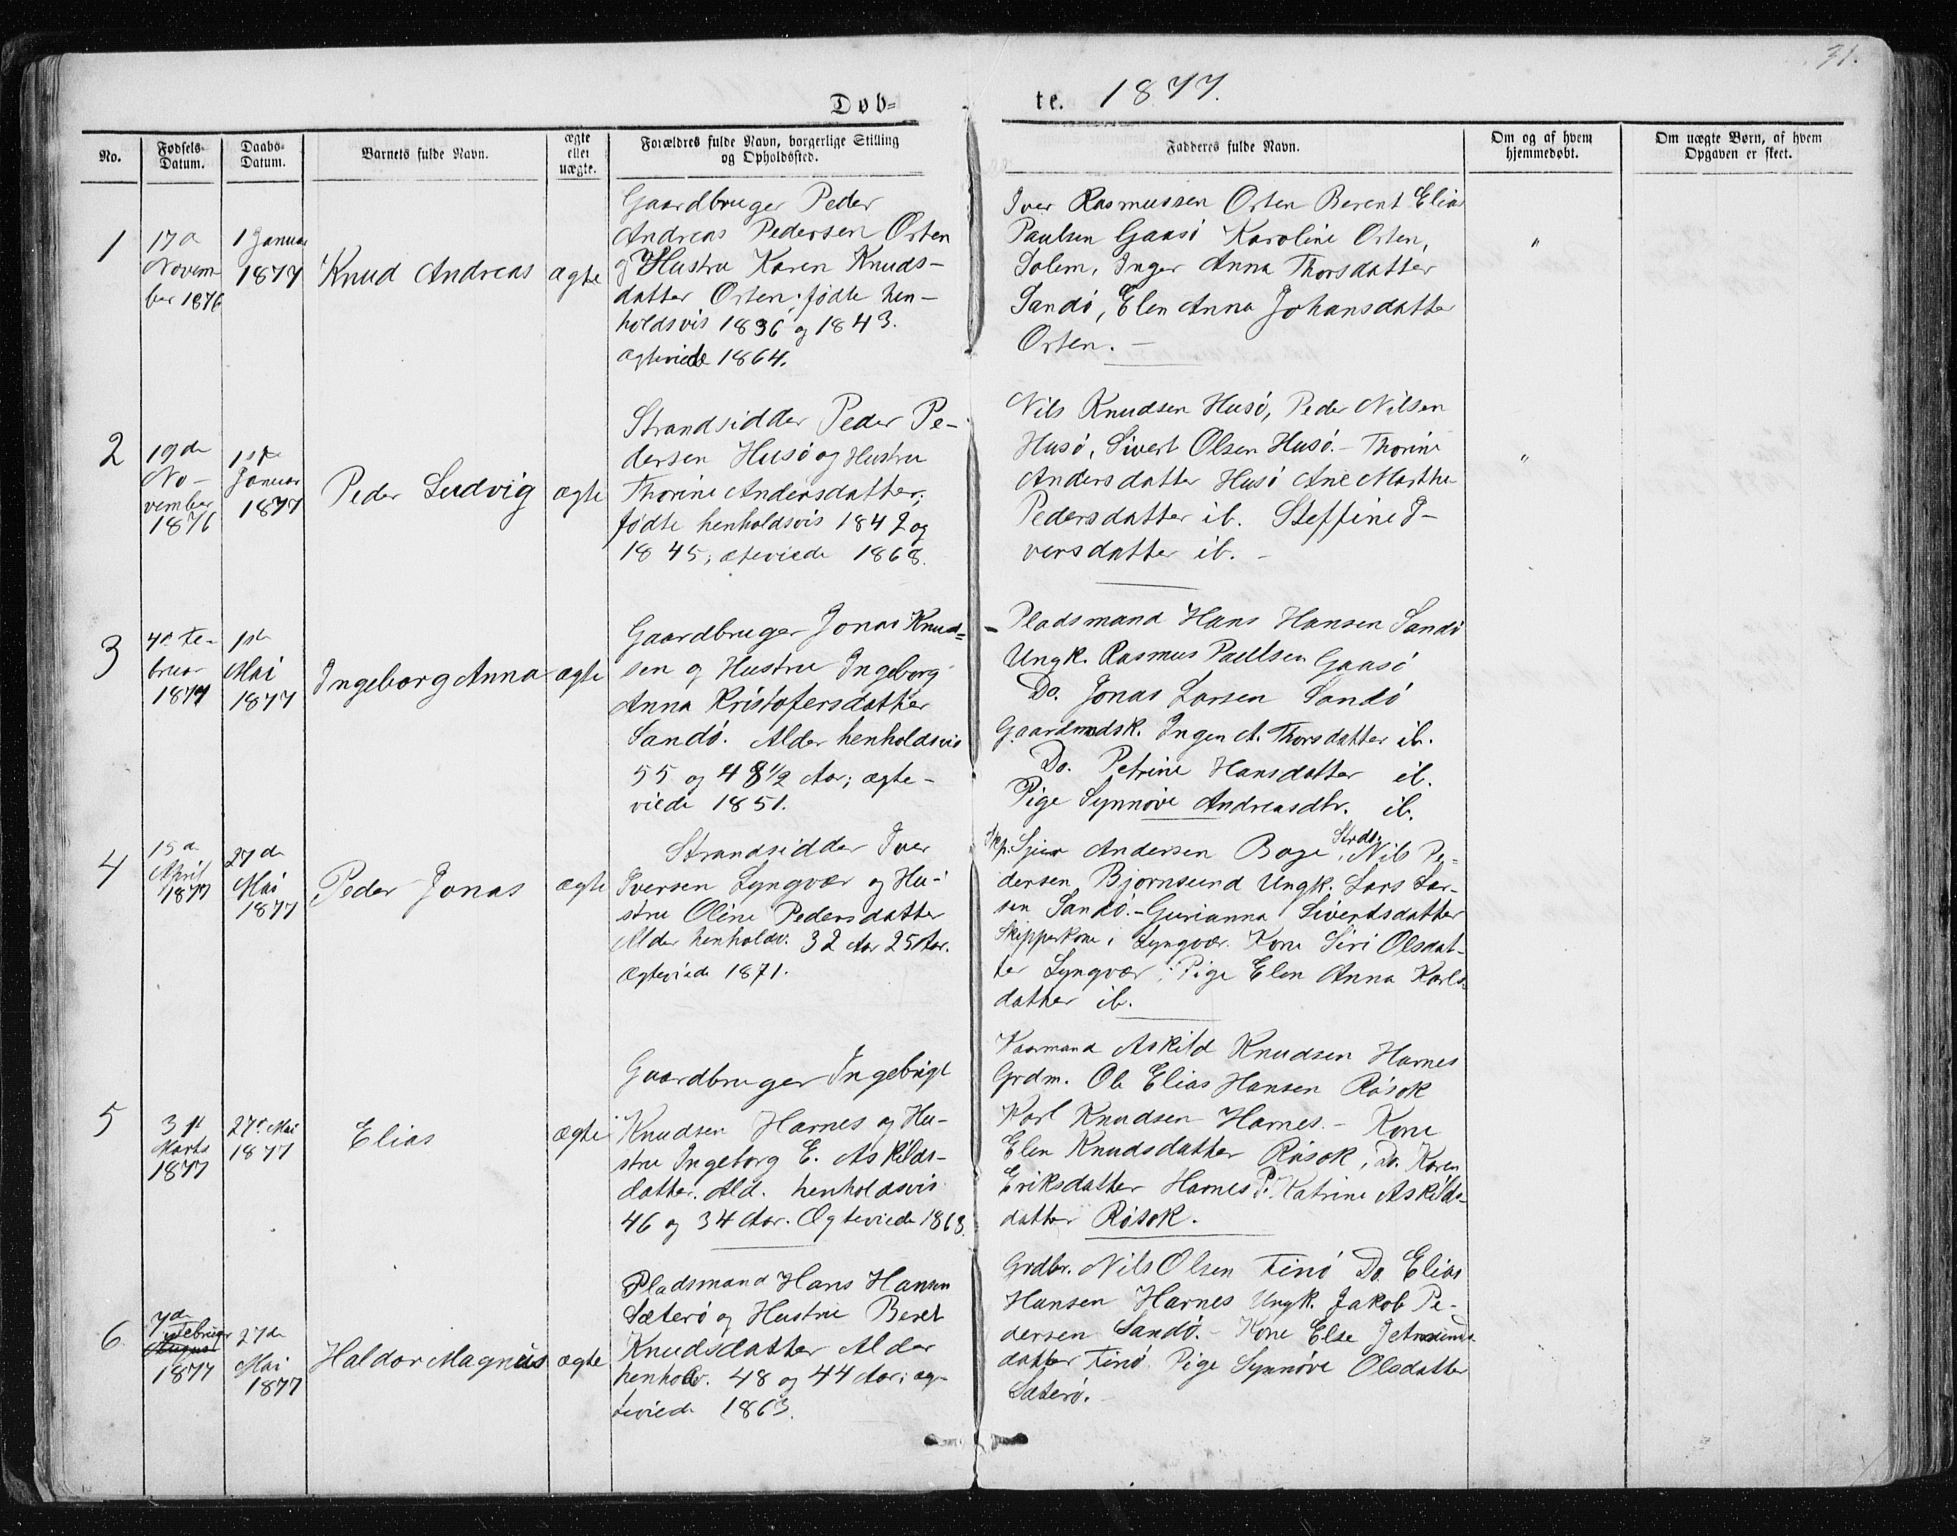 31.
Døb= te. 1877.
No.
Fødsels-
Datum.
Daabs-
Datum.
Barnets fulde Navn.
ægte
eller
uægte.
Forældres fulde Navn, borgerlige Stilling
og Opholdssted.
Fadderes fulde Navn.
Om og af hvem
hjemmedøbt.
Om uægte Børn, af hvem
Opgaven er skeet.
1
17d
Novem-
ber 1876
1 Januar
1877
Knud Andreas
ægte
Gaardbruger Peder
Andreas Pedersen Orten
og Hustru Karen Knuds-
datter Orten; fødte hen-
holdsvis 1836 og 1843.
ægteviede 1864.
Iver Rasmussen Orten Berent Elias
Paulsen Gaasø Karoline Orten,
Solem, Inger Anna Thorsdatter
Sandø, Elen Anna Johansdatter
Orten. –
"
2
19de
No-
vember
1876
1ste
Januar
1877
Peder Ludvig
ægte
Strandsidder Peder Pe-
dersen Husø og Hustru
Thorine Andersdatter;
fødte henholdsvis 1842 og
1845; æteviede 1868.
Nils Knudsen Husø, Peder Nilsen
Husø, Sivert Olsen Husø. – Thorine
Andersdatter Husø Ane Marthe
Pedersdatter ib. Steffine I-
versdatter ib. –
"
3
4d Fe-
bruar
1877
1ste
Mai
1877
Ingeborg Anna
ægte
Gaardbruger Jonas Knud=
sen og Hustru Ingeborg
Anna Kristofersdatter
Sandø. Alder henholdsvis
55 og 48 1/2 Aar; ægte-
viede 1851.
Pladsmand Hans Hansen Sandø
Ungk. Rasmus Paulsen Gaasø
Do. Jonas Larsen Sandø
Gaardmdsk. Inger A. Thorsdatter ib.
Do. Petrine Hansdatter ib.
Pige Synnøve Andreasdtr. ib.
4
15d
April
1877
27de
Mai
1877
Peder Jonas
ægte
Strandsidder Iver
Iversen Lyngvær og Hu-
stru Oline Pedersdatter
Alder henholdv. 32 Aar 25 Aar.
ægteviede 1871.
Andersen Nils Pe-
dersen Bjørnsund Ungk. Lars Lar-
sen Sandø. – Gurianna Sivertsdatter
Skipperkone, Lyngvær. Kone Siri Olsdat-
ter Lyngvær. Pige Elen Anna Karls-
datter ib.
5
3d
Marts
1877
27d Mai
1877
Elias
ægte
Gaardbruger Ingebrigt
Knudsen Harnes og Hu-
stru Ingeborg E. Askilds-
datter. Ald. henholdsvis
46 og 34 Aar. Ægteviede 1868.
Kaarmand Askild Knudsen Harnes
Grdm. Ole Elias Hansen Røsok
Karl Knudsen Harnes. – Kone
Elen Knudsdatter Røsok, Do. Karen
Eriksdatter Harnes P. Katrine Askilds-
datter Røsok.
6.
7d
Februar
August
1877
27de
Mai
1877
Haldor Magnus
ægte
Pladsmand Hans Hansen
Sæterø og Hustru Beret
Knudsdatter Alder
henholdv. 48 og 44 Aar; æg-
teviede 1863.
Grdbr. Nils Olsen Finø Do. Elias
Hansen Harnes Ungk. Jakob Pe-
dersen Sandø. – Kone Else
datter Finø. Pige Synnøve Olsdatter
Sæterø. –